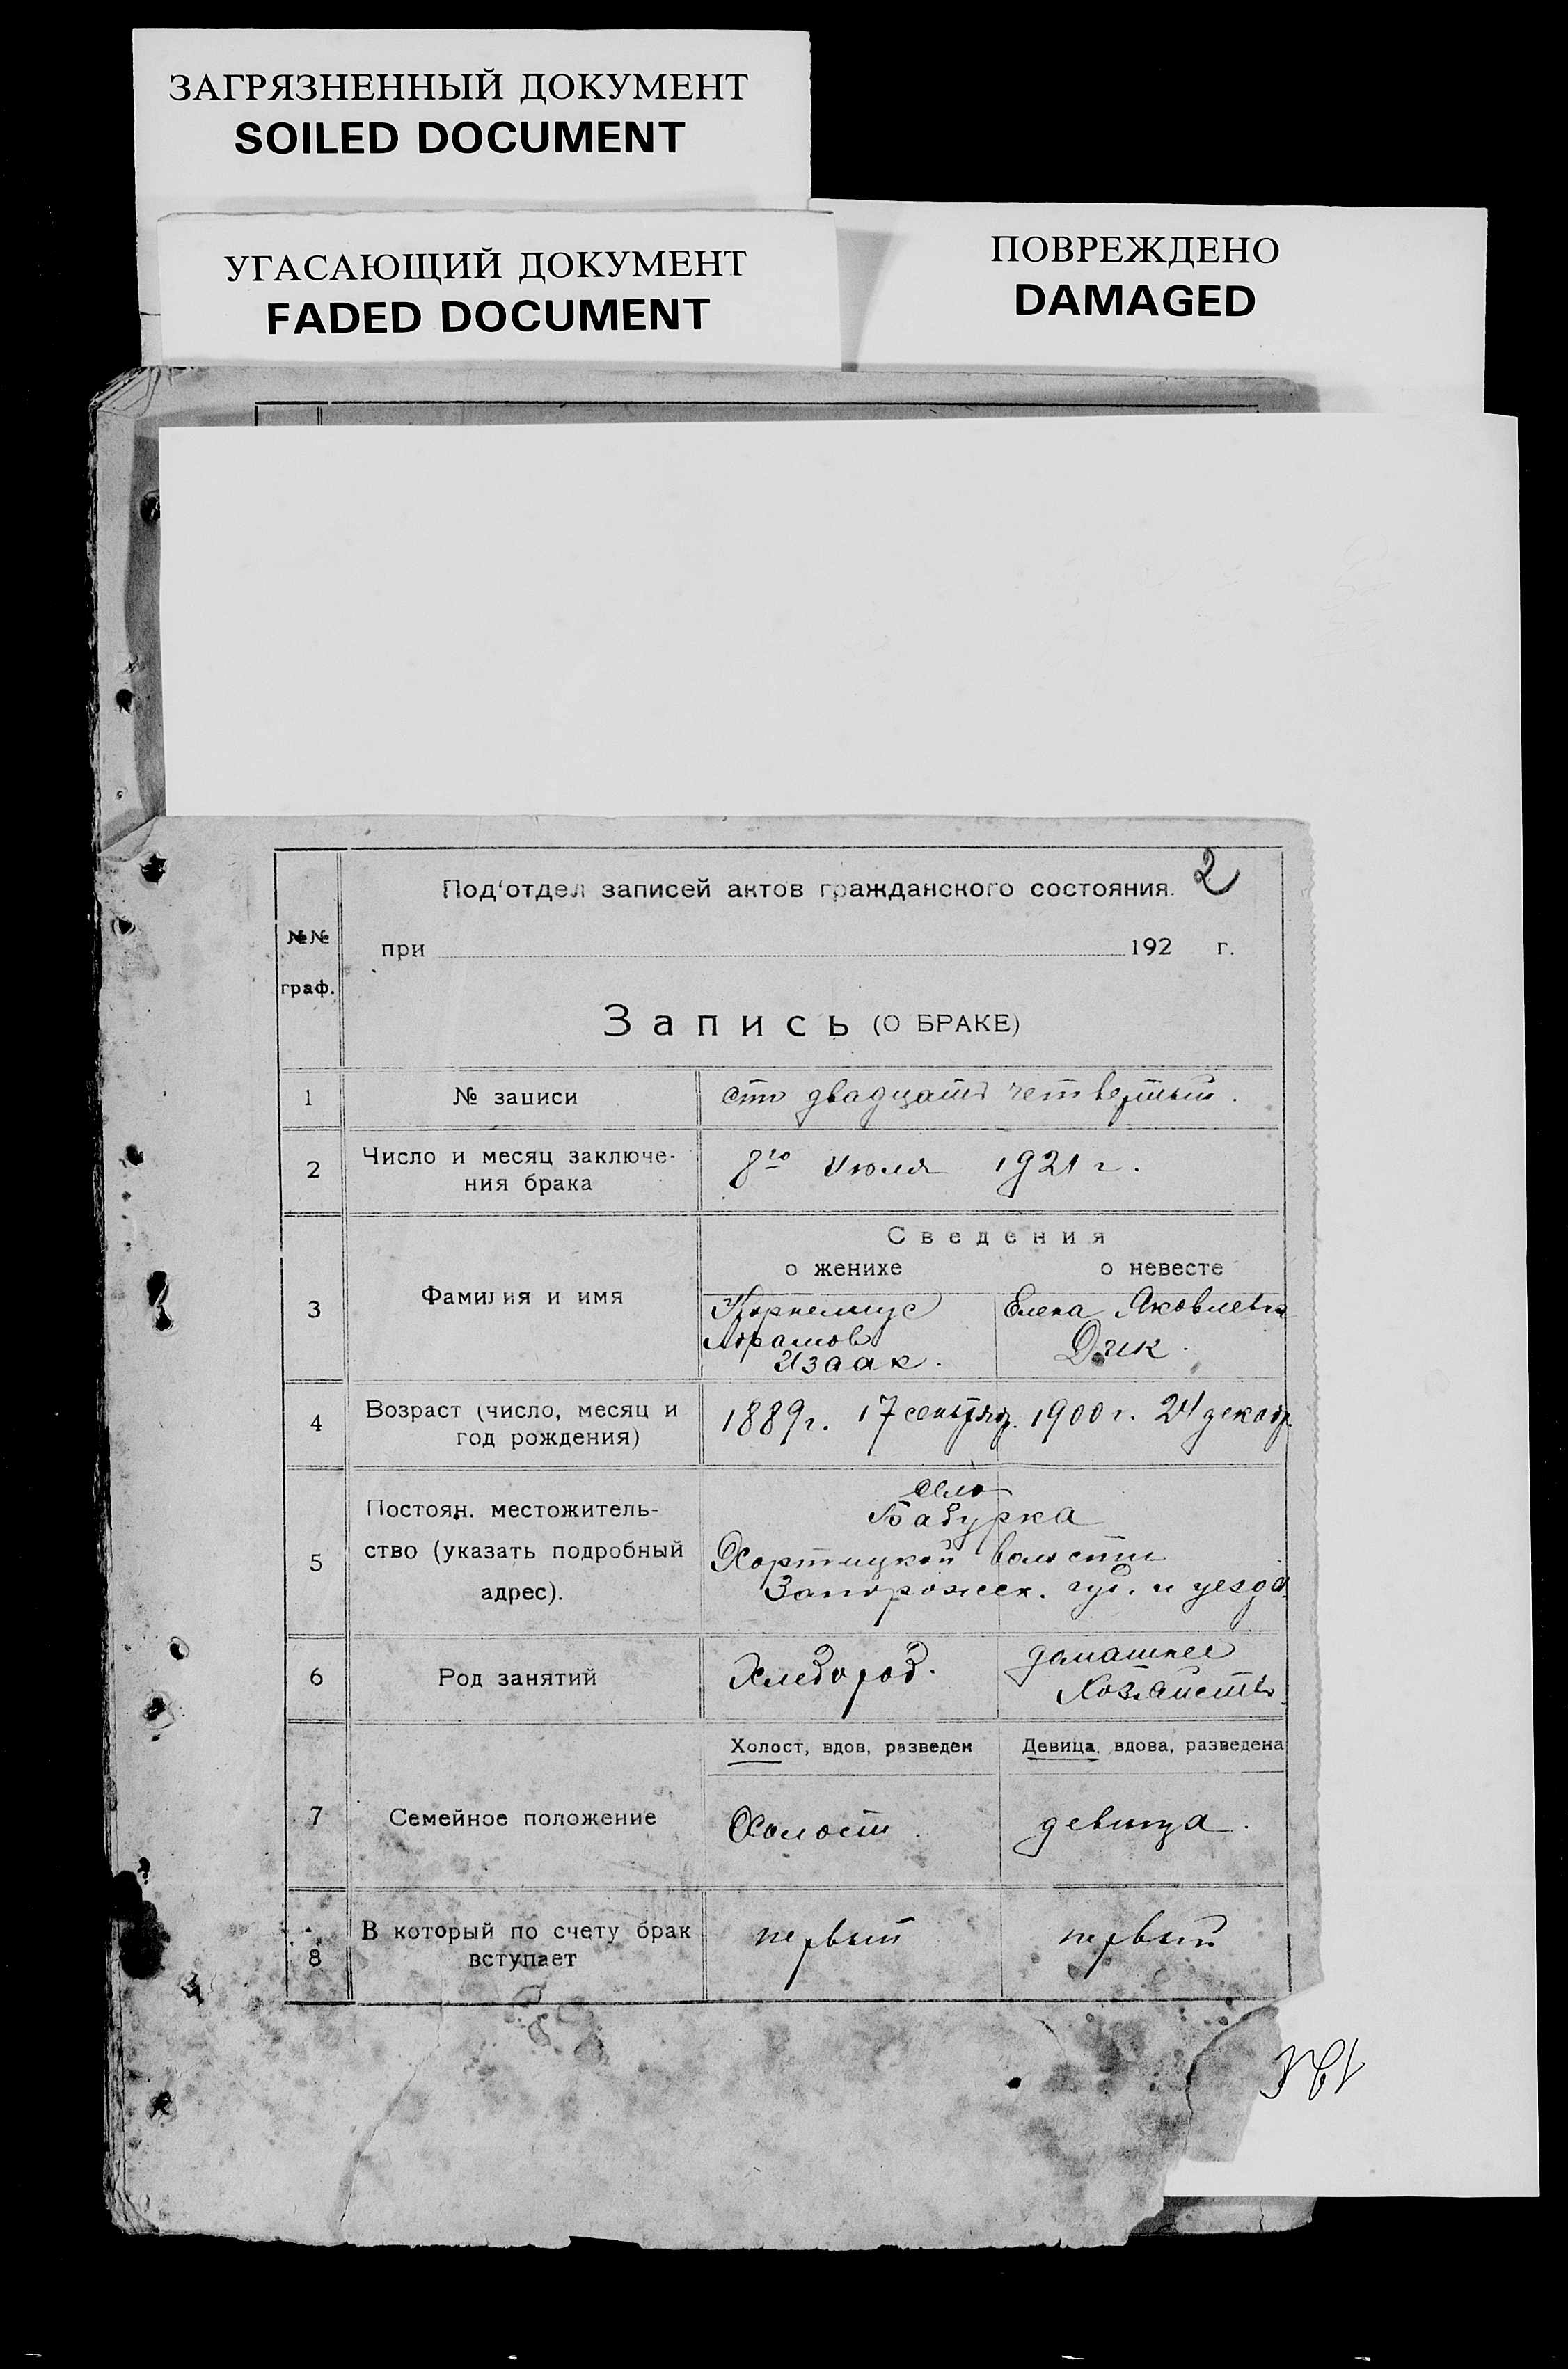 ЗАГРЯЗНЕННЫЙ ДОКУМЕНТ
SOILED DOCUMENT
УГАСАЮЩИЙ ДОКУМЕНТ
FADED DOCUMENT
ПОВРЕЖДЕНО
DAMAGED
2
Под'отдел записей актов гражданского состояния.
№№
граф.
при 192 г.
Запись (О БРАКЕ)
1 № записи сто двадцать четвертый.
2 Число и месяц заключе-
ния брака
8го Июля 1921 г.
Сведения
о женихе о невесте
3 Фамилия и имя
Корнелиус
Абрамов
Изаак.
Елена Яковлевна
Дик.
4 Возраст (число, месяц и
год рождения)
1889г. 17 сентябр. 1900г. 24 декабр.
5 Постоян. местожитель-
ство (указать подробный
адрес).
село
Бабурка
Хортицкой волости
Запорожск. губ. и уезда
6 Род занятий
Хлебороб.
домашнее
хозяйство
Холост, вдов, разведен
Девица, вдова, разведена
7 Семейное положение
Холост.
девица.
8 В который по счету брак
вступает
первый
первый